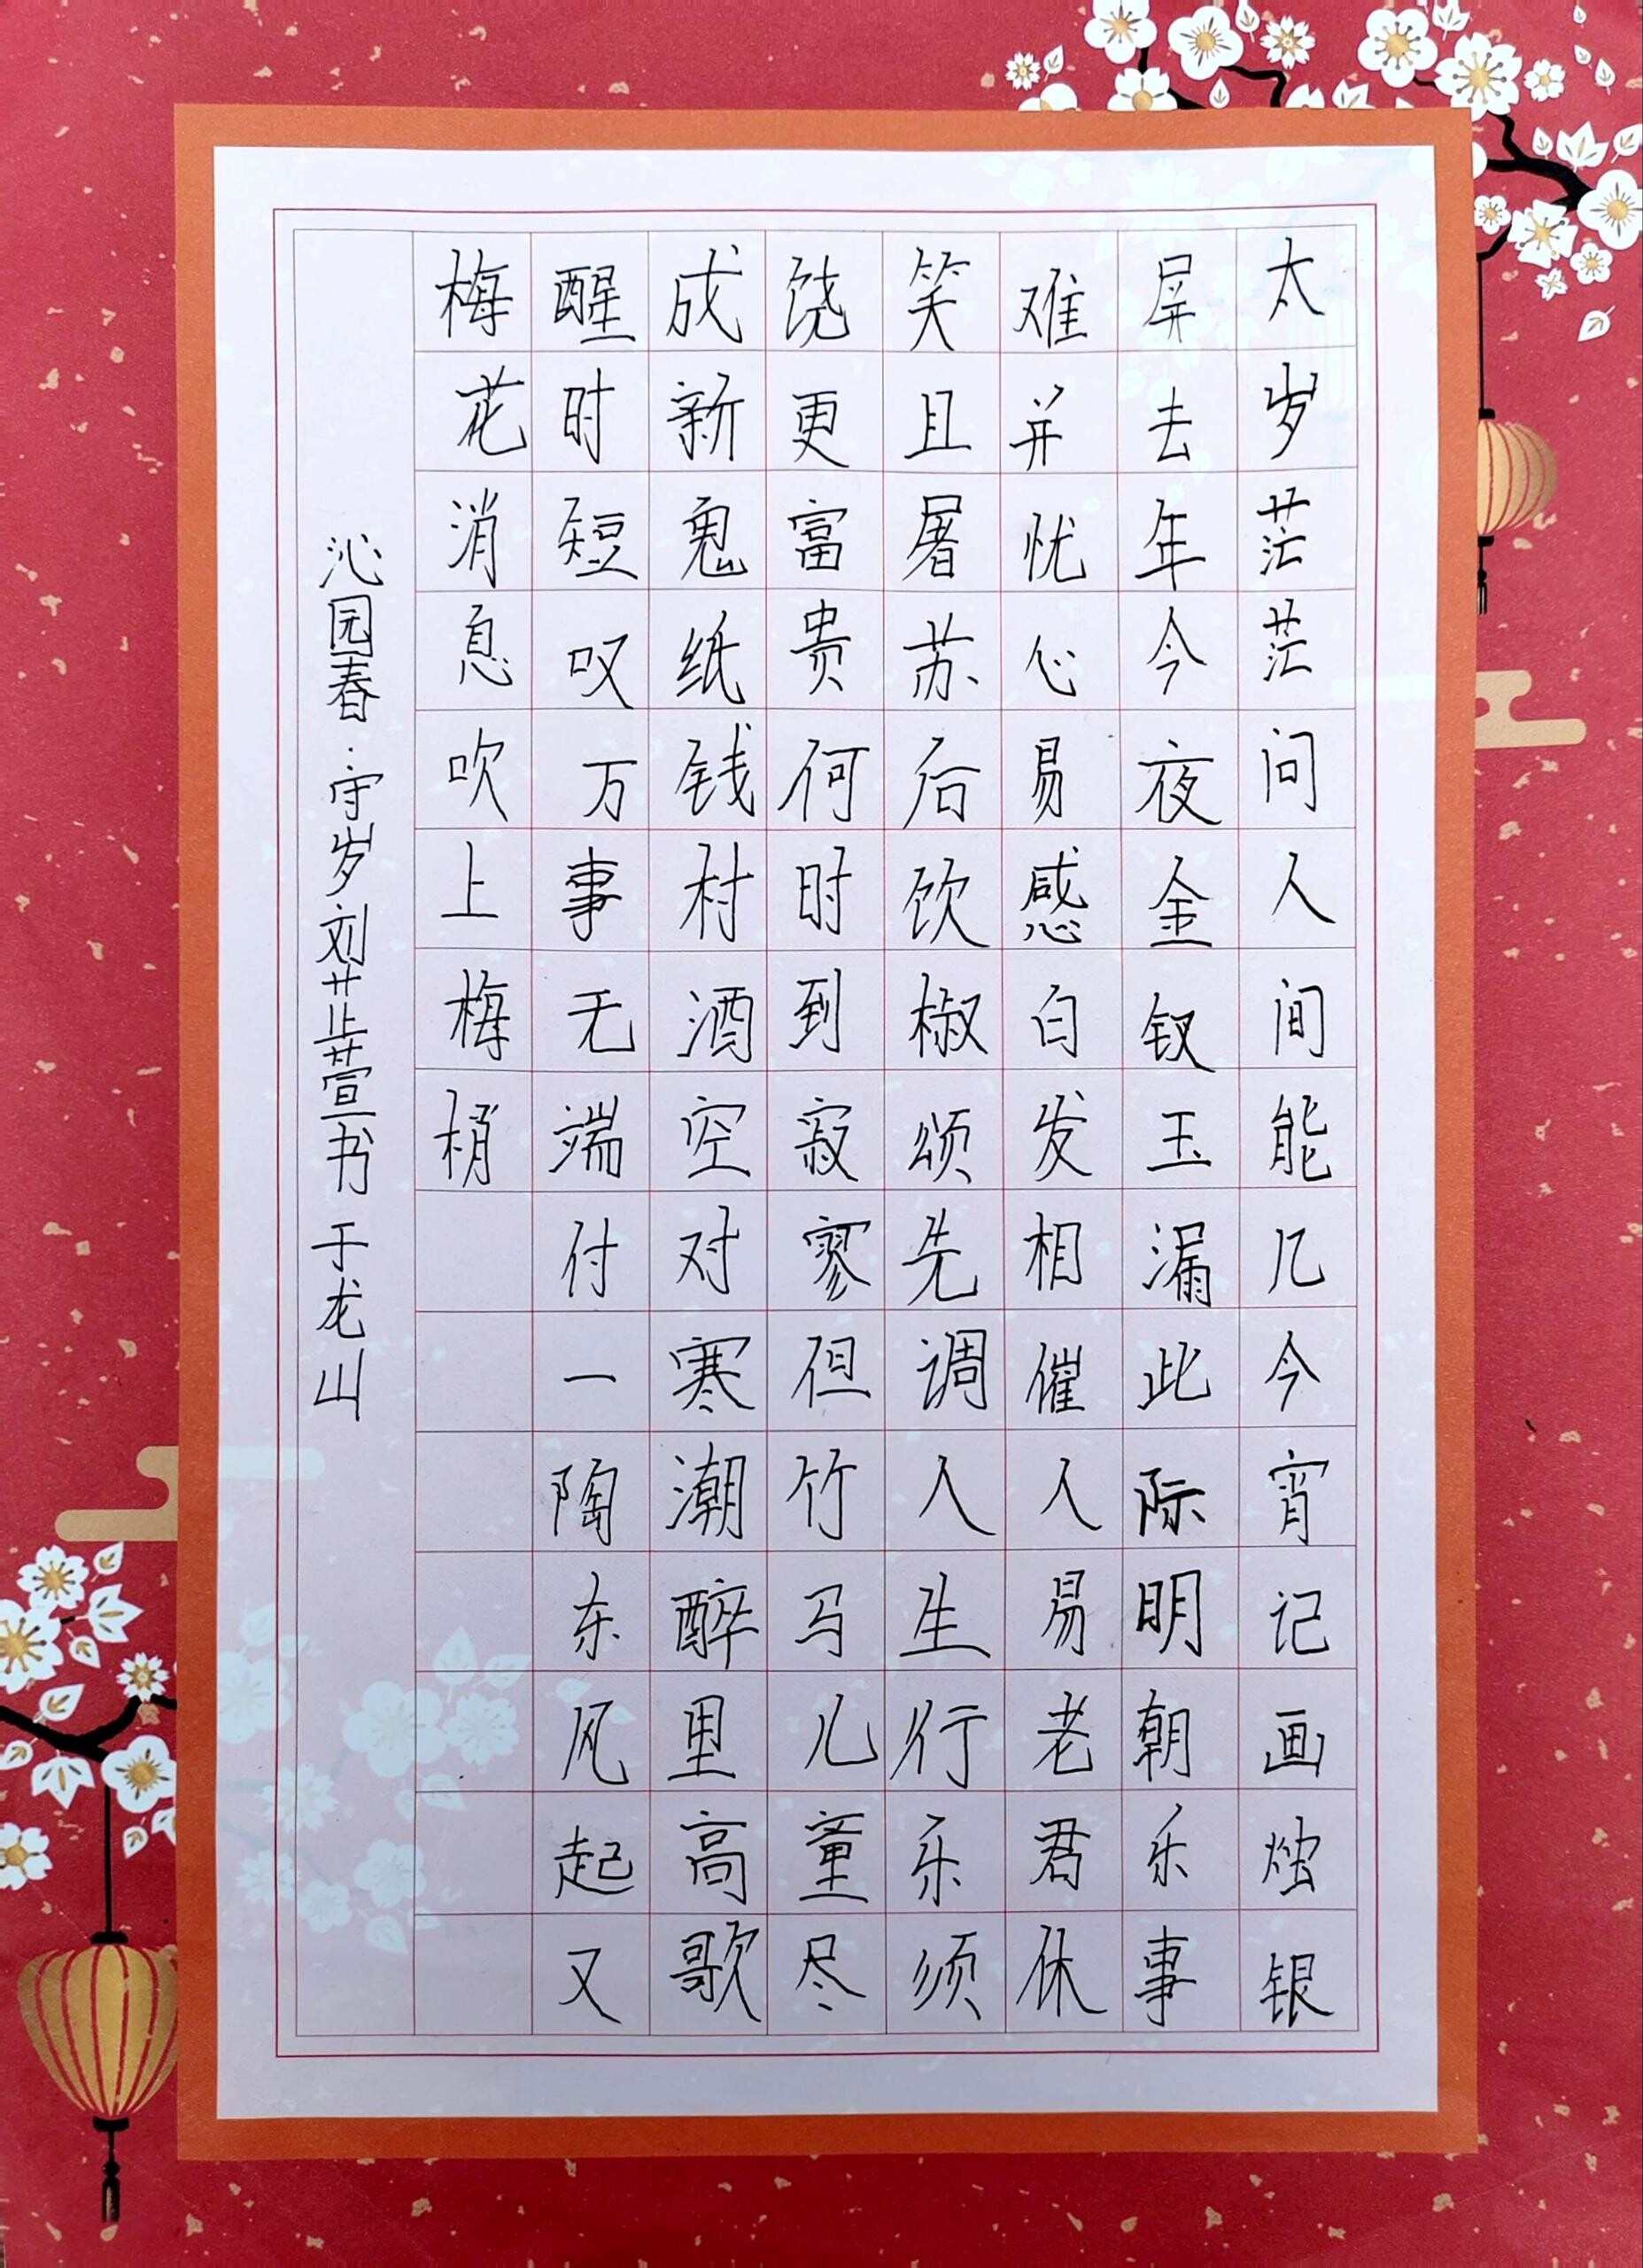 太岁茫茫问人间能几今宵记画烛银
屏去年今夜金钗玉漏此际明朝乐事
难并忧心易感白发相催人易老君休
笑且屠苏后饮椒颂先调人生行乐须
饶更富贵何时到寂寥但竹马儿童尽
成新鬼纸钱村酒空对寒潮醉里高歌
醒时短叹万事无端付一陶东风起又
梅花消息吹上梅梢
沁园春·守岁刘芷萱书于龙山